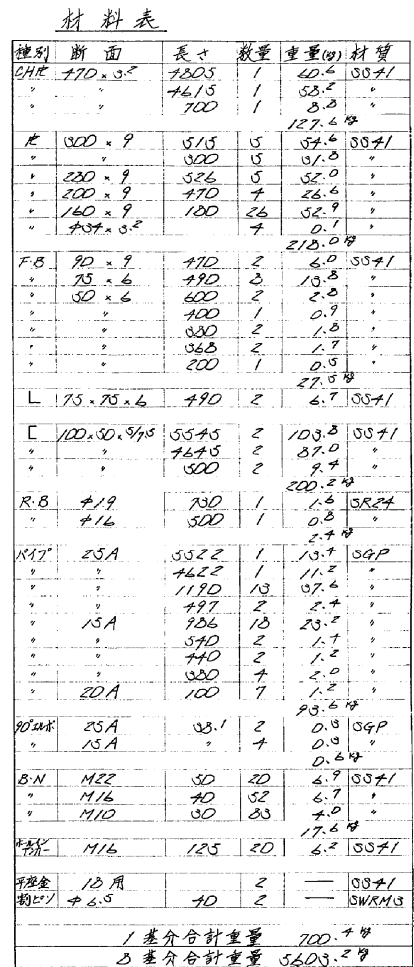 材料表
種別 断面 長さ 数量 重量(kg) 材質
CHPL 470×3.2 4805 1 60.6 SS41
〃 〃 4615 1 58.2 〃
〃 〃 700 1 8.8 〃
127.6 kg
PL 300×9 515 5 54.6 SS41
〃 〃 300 5 31.8 〃
〃 280×9 526 5 52.0 〃
〃 200×9 470 4 26.6 〃
〃 160×9 180 26 52.9 〃
〃 φ34×3.2 4 0.1 〃
218.0 kg
F·B 90×9 470 2 6.0 SS41
〃 75×6 490 8 13.8 〃
〃 50×6 600 2 2.8 〃
〃 〃 400 1 0.9 〃
〃 〃 380 2 1.8 〃
〃 〃 368 2 1.7 〃
〃 〃 200 1 0.5 〃
27.5 kg
L 75×75×6 490 2 6.7 SS41
C 100×50×5/7.5 5545 2 103.8 SS41
〃 〃 4645 2 87.0 〃
〃 〃 500 2 9.4 〃
200.2 kg
R·B φ19 730 1 1.6 SR24
〃 φ16 500 1 0.8 〃
2.4 kg
パイプ 25A 5522 1 13.4 SGP
〃 〃 4622 1 11.2 〃
〃 〃 1190 13 37.6 〃
〃 〃 497 2 2.4 〃
〃 15A 986 18 23.2 〃
〃 〃 540 2 1.4 〃
〃 〃 440 2 1.2 〃
〃 〃 380 4 2.0 〃
〃 20A 100 7 1.2 〃
93.6 kg
90°エルボ 25A 38.1 2 0.3 SGP
〃 15A 〃 4 0.3 〃
0.6 kg
B·N M22 50 20 6.9 SS41
〃 M16 40 52 6.7 〃
〃 M10 30 83 4.0 〃
17.6 kg
ホールインアンカー M16 125 20 6.2 SS41
平座金 18用 2 — SS41
割ピン φ6.5 40 2 — SWRM3
1基分合計重量 700.4 kg
8基分合計重量 5603.2 kg